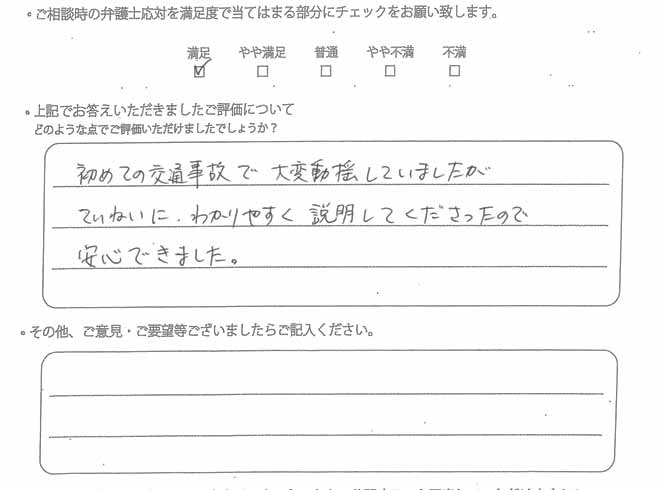 ご相談時の弁護士応対を満足度で当てはまる部分にチェックをお願い致します。
満足 やや満足 普通 やや不満 不満
上記でお答えいただきましたご評価について
どのような点でご評価いただけましたでしょうか？
初めての交通事故で大変動揺していましたが
ていねいに、わかりやすく説明してくださったので
安心できました。
その他、ご意見・ご要望等ございましたらご記入ください。